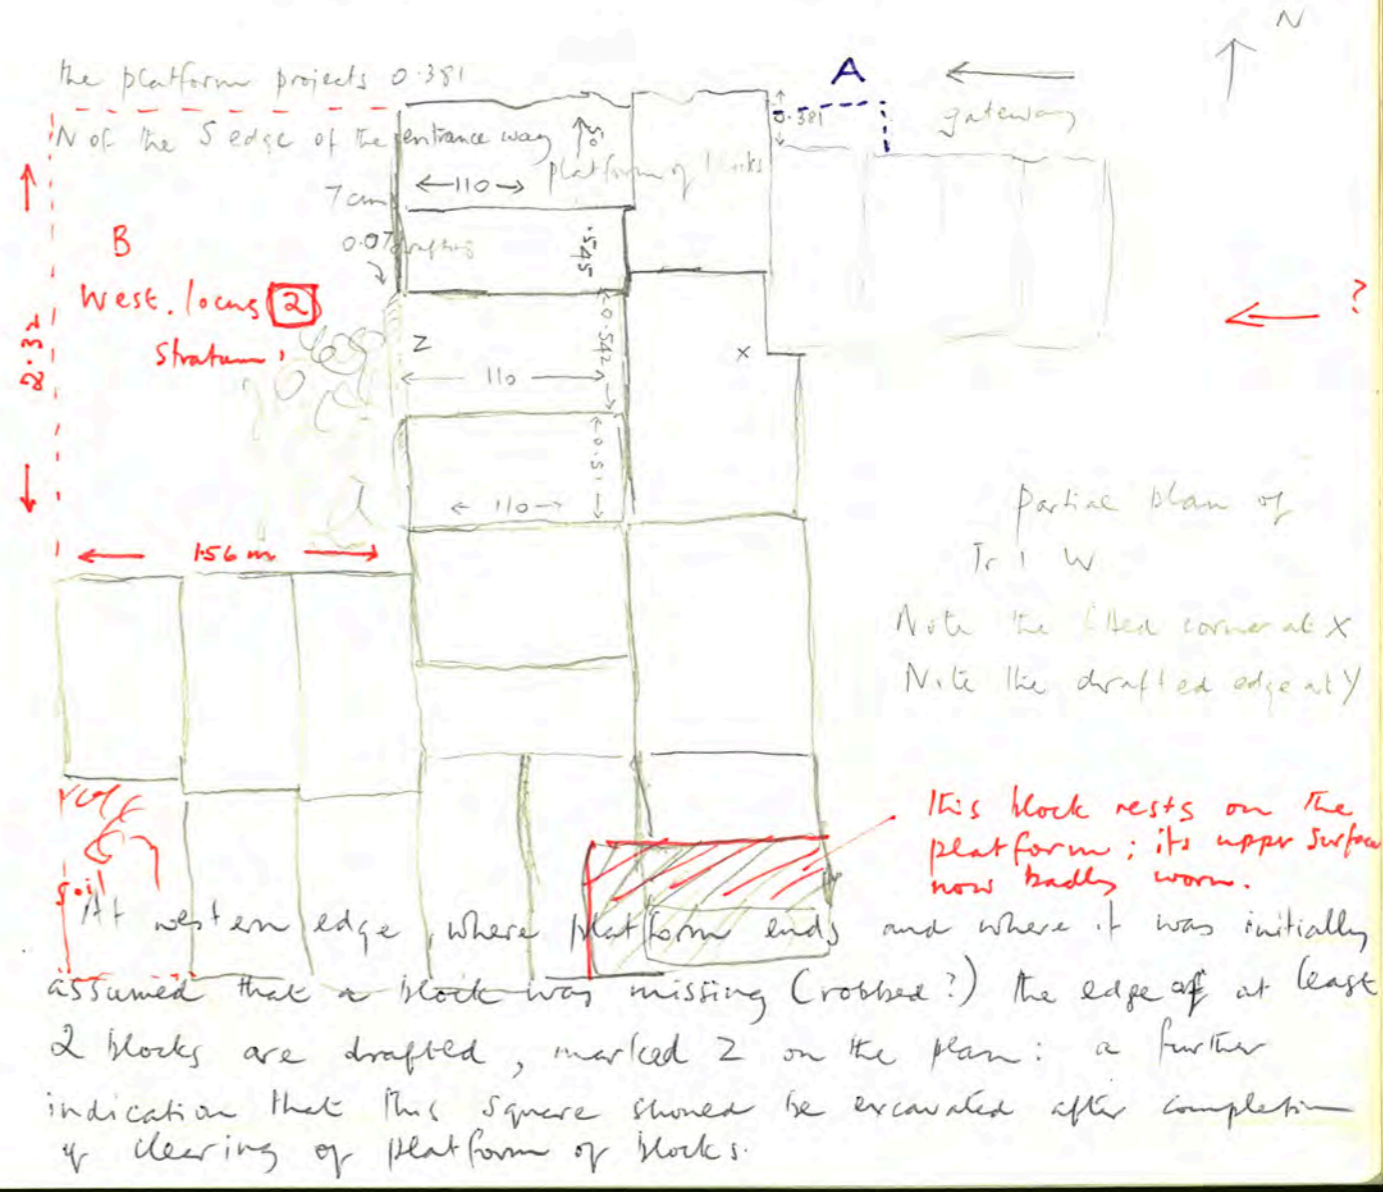 N
the platform projects 0.381
A
gateway
0.381
N of the S edge of the entrance way
.51
platform of blocks
←110→
7 cm
0.07 drafting
.545
B
West. locus 2
Stratum
?
2.32
Z
0.542
X
← 110 →
0.51
← 110 →
1.56 m
partial plan of
Tr 1 W
Note the fitted corner at X
Note the drafted edge at Y
this block rests on the
platform; its upper surface
now badly worn.
soil
At western edge, where platform ends and where it was initially
assumed that a block was missing (robbed?) the edge of at least
2 blocks are drafted, marked Z on the plan: a further
indication that this square should be excavated after completion
of clearing of platform of blocks.